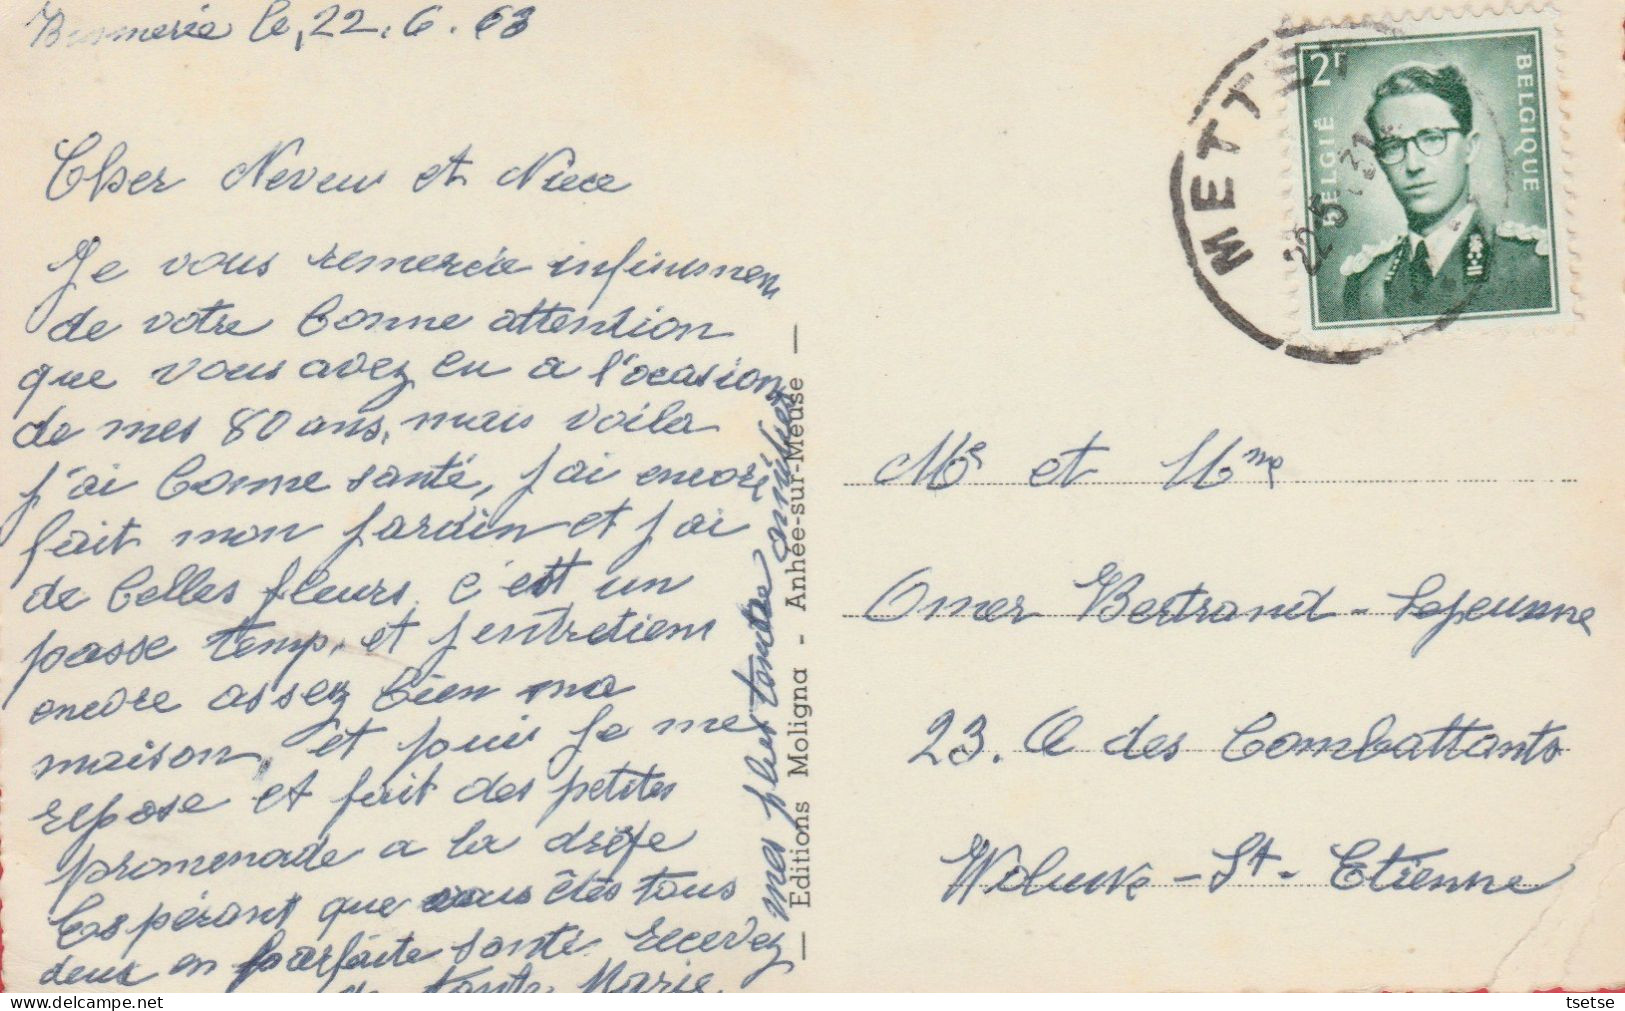 le, 22. 6. 63
Cher Neveu et Niece
Je vous remercie infiniment
de votre bonne attention
que vous avez eu a l'ocasion
de mes 80 ans, mais voila
j'ai bonne santé, j'ai encore
fait mon jardin et j'ai
de belles fleurs, c'est un
passe temp, et j'entretiens
encore assez bien ma
maison, et puis je me
repose et fait des petites
promenade a la
Espérant que vous êtes tous
deux en parfaite santé recevez
mes plus tendre amitiez
de Tante Marie.
— Editions Moligna - Anhée-sur-Meuse —
METT
22 5
2F
BELGIË
BELGIQUE
Mr et Mme
Omer Bertrand - Lejeunne
23. A des Combattants
Woluwe - St - Etienne
tsetse